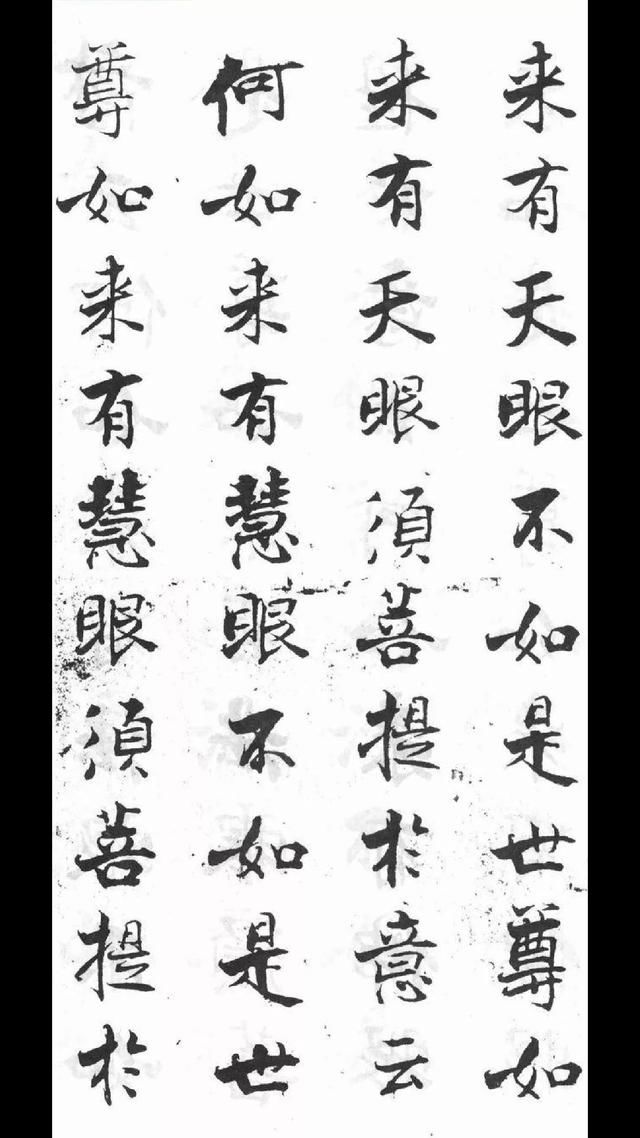 来有天眼不如是世尊如
来有天眼須菩提於意云
何如来有慧眼不如是世
尊如来有慧眼須菩提於